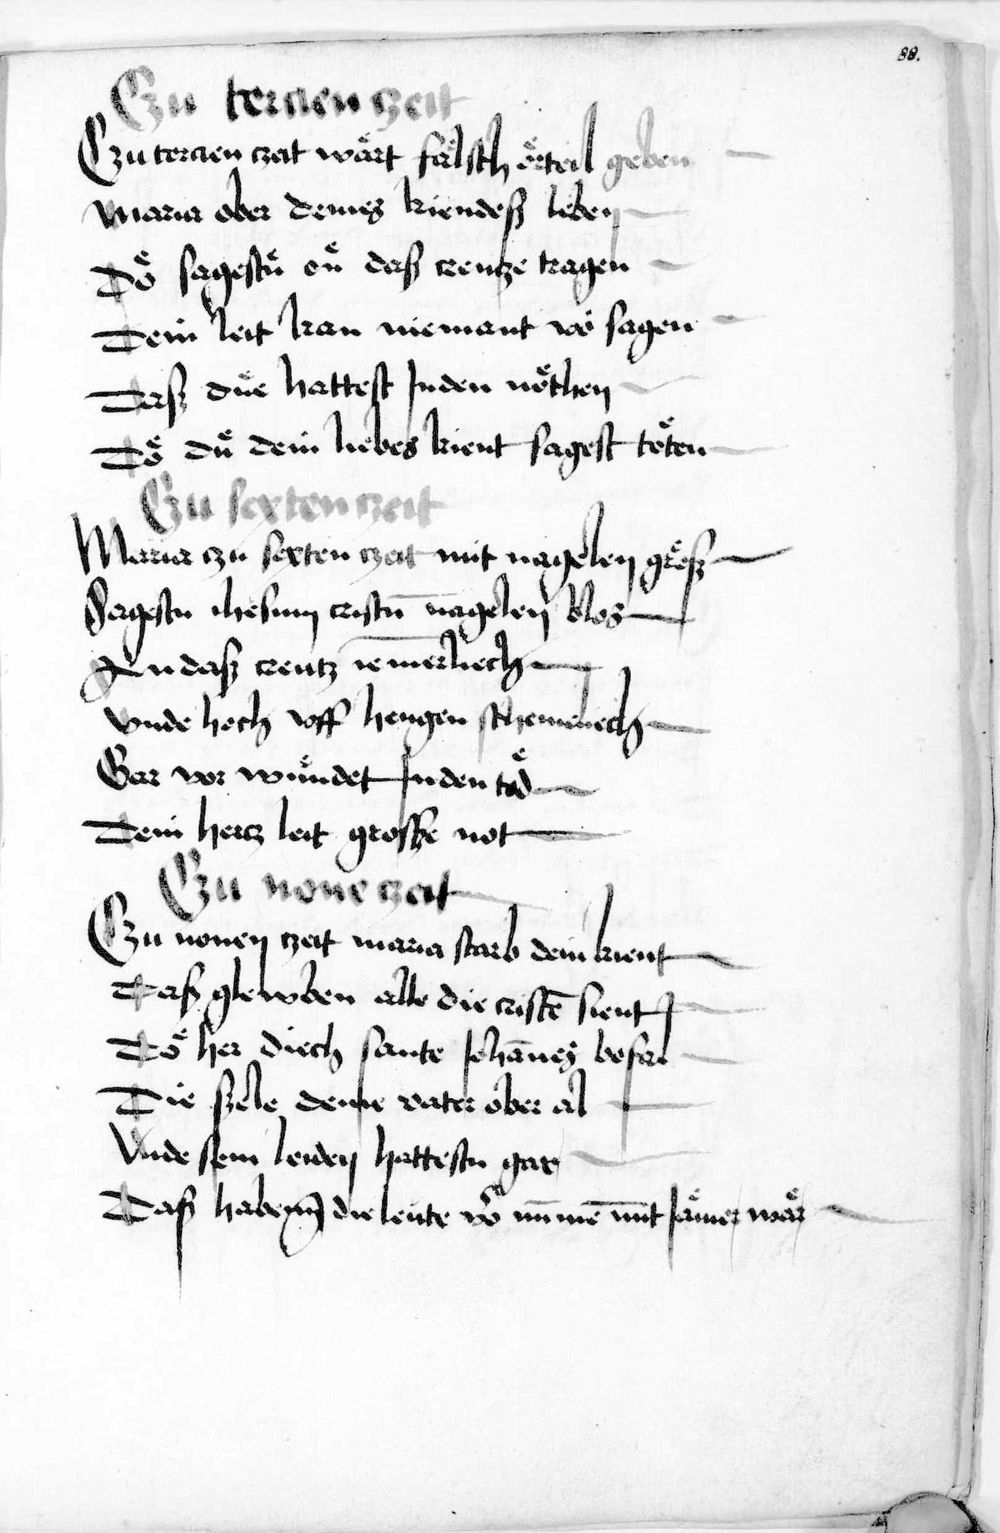 88.
Czu tercien czeit
Czu tercien czeit wart falsch orteil geben
Maria ober deines kiendeß leben
Do sagestu en daß creutze tragen
Dein leit kan niemant vol sagen
Daß due hattest Jnden nothen
Do du dein liebes kient sagest toten
Czu sexten czeit
Maria czu sexten czeit mit nagelen groß
Sagestu ihesum cristū nagelen blos
An daß creutz iemerliech
Vnde hoch vff hengen schemeliech
Gar vor wundet Jnden tod
Dein hertz leit grosße not
Czu none czeit
Czu nonen czeit maria starb dein kient
Daß glewben alle die cristē sient
Do her diech sante Johānes befal
Die szele deme vater ober al
Vnde sein leiden hattestu gar
Daß haben die leute nūmē Jamer war